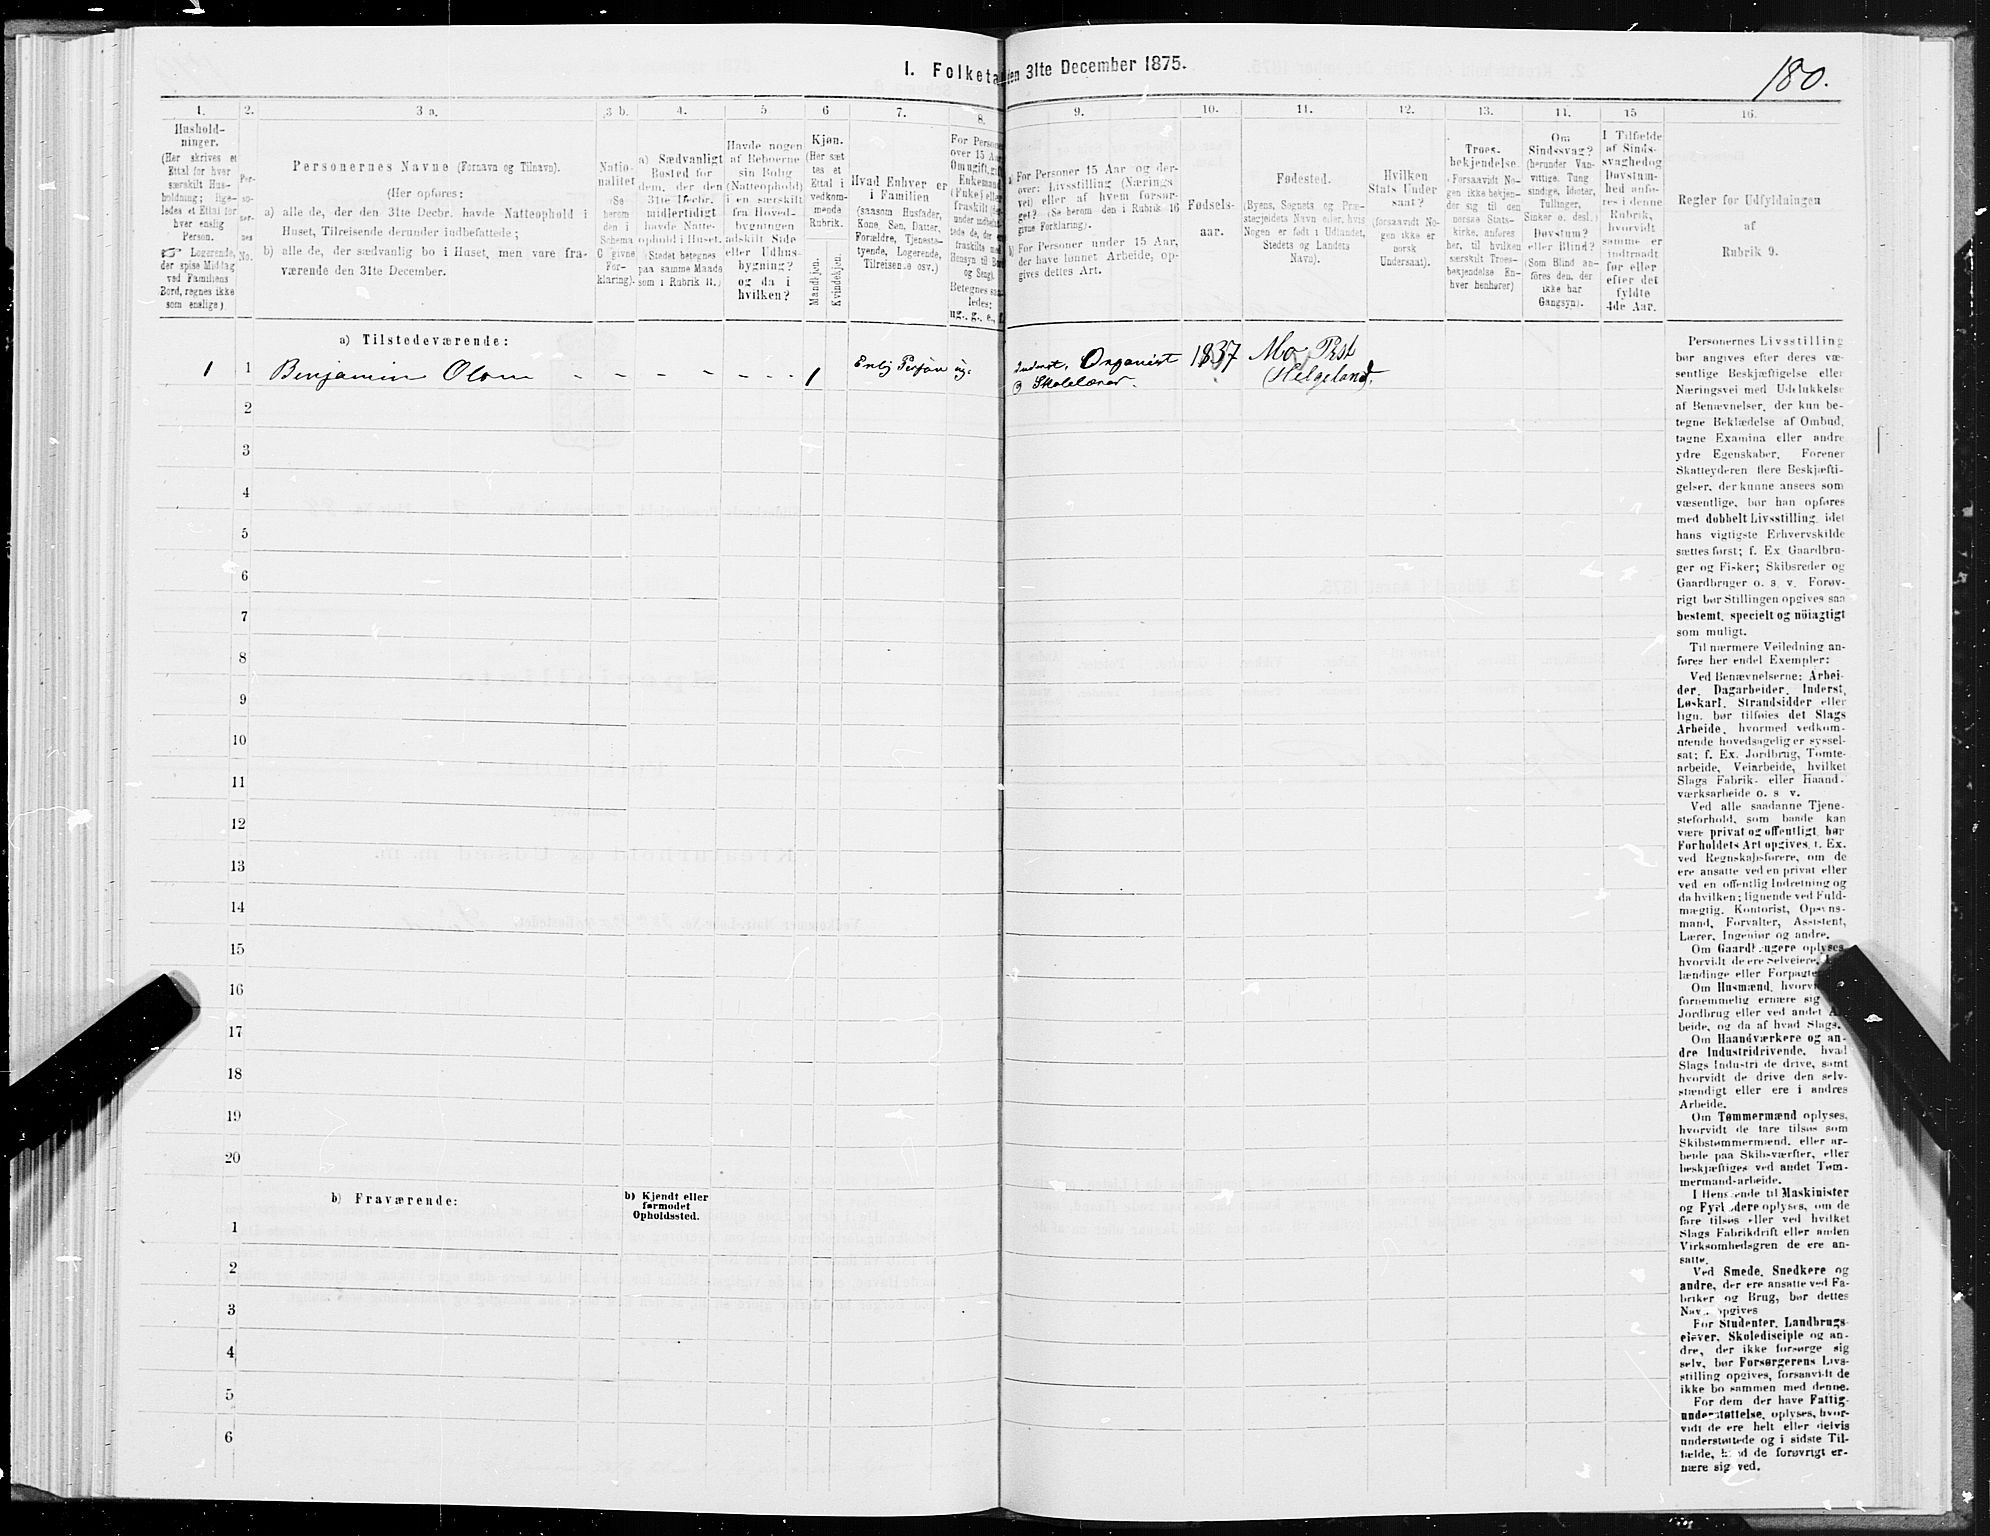 180.
I. Folketa
den 31te December 1875.
1.
2.
3 a.
3 b.
4.
5
6
7.
8.
9.
10.
11.
12.
13.
14.
15
16.
Hushold-
ninger.
(Her skrives et
Ettal for hver
særskilt Hus-
holdning; lige-
ledes et Ettal for
hver enslig
Person.
☞ Logerende,
der spise Middag
ved Familiens
Bord, regnes ikke
som enslige)
Per-
so-
ner-
nes
No.
Personernes Navne (Fornavn og Tilnavn).
(Her opføres:
a) alle de, der den 31te Decbr. havde Natteophold i
Huset, Tilreisende derunder indbefattede;
b) alle de, der sædvanlig bo i Huset, men vare fra-
værende den 31te December.
Natio-
nalitet
(Se
herom
den i
Schema
C givne
For-
klaring).
a) Sædvanligt
Bosted for
dem, der den
31te Decbr.
midlertidigt
havde Natte-
ophold i Huset.
(Stedet betegnes
paa samme Maade
som i Rubrik 11.)
Havde nogen
af Beboerne
sin Bolig
(Natteophold)
i en særskilt
fra Hoved-
bygningen
adskilt Side
eller Udhus-
bygning?
og da i
hvilken?
Kjøn.
(Her sæt
tes et
Ettal i
vedkom-
mende
Rubrik.
Mandkjen.
Kvindekjen.
Hvad Enhver er
i Familien
(saasom Husfader,
Kone, Søn, Datter,
Forældre, Tjeneste-
tyende, Logerende,
Tilreisende osv.)
For Persone
over 15 Aa
Om ugift, gift
Enkemand
(Enke) eller
fraskilt
Betegnes saa
ledes:
ug., g., e., f.
a) For Personer 15 Aar og der-
over: Livsstilling (Nærings
vei) eller af hvem forsør-
get? (Se herom den i Rubrik 16
givne Forklaring).
b) For Personer under 15 Aar,
der have lønnet Arbeide, op-
gives dettes Art.
Fødsels-
aar.
Fødested.
(Byens, Sognets og Præ-
stegjeldets Navn eller, hvis
Nogen er født i Udlandet,
Stedets og Landets
Navn).
Hvilken
Stats Under
saat?
(forsaavidt No-
gen ikke er
norsk
Undersaat).
Troes-
bekjendelse.
(Forsaavidt No-
gen ikke bekjen-
der sig til den
norske Stats-
kirke, anføres
her, til hvilken
særskilt Troes-
bekjendelse En-
hver henhører)
Om
Sindssvag?
(herunder Van-
vittige, Tung
sindige, Idioter,
Tullinger,
Sinker o. desl.)
Døvstum?
eller Blind?
(Som Blind an-
føres den, der
ikke har
Gangsyn).
I Tilfælde
af Sinds-
svaghed og
Døvstum-
hed anfø-
res i denne
Rubrik,
hvorvidt
samme er
indtraadt
før eller
efter det
fyldte
4de Aar.
Regler for Udfyldningen
af
Rubrik 9.
a) Tilstedeværende:
1 1 Benjamin Olsen - - - - - - - 1 Enlig Person ug. Inderst, Organist 1837 Mo Pst
og Skolelærer. (Helgeland).
2
3
4
5
6
7
8
9
10
11
12
13
14
15
16
17
18
19
20
b) Fraværende:
b) Kjendt eller
formodet
Opholdssted.
1
2
3
4
5
6
Personernes Livsstilling
bør angives efter deres væ-
sentlige Beskjæftigelse eller
Næringsvei med Udelukkelse
af Benævnelser, der kun be-
tegne Beklædelse af Ombud,
tagne Examina eller andre
ydre Egenskaber. Forener
Skatteyderen flere Beskjæfti-
gelser, der kunne ansees som
væsentlige, bør han opføres
med dobbelt Livsstilling, idet
hans vigtigste Erhvervskilde
sættes først; f. Ex Gaardbru-
ger og Fisker; Skibsreder og
Gaardbruger o. s. v. Forøv-
rigt bør Stillingen opgives saa
bestemt, specielt og nöiagtigt
som muligt.
Til nærmere Veiledning an-
føres her endel Exempler:
Ved Benævnelserne: Arbei-
der, Dagarbeider, Inderst,
Løskarl, Strandsidder eller
lign. bør tilføies det Slags
Arbeide, hvormed vedkom-
mende hovedsagelig er syssel-
sat; f. Ex. Jordbrug, Tomte-
arbeide, Veiarbeide, hvilket
Slags Fabrik- eller Haand-
værksarbeide o. s v.
Ved alle saadanne Tjene-
steforhold, som baade kan
være privat og offentligt, bør
Forholdets Art opgives, f. Ex.
ved Regnskabsførere, om de
ere ansatte ved en privat eller
ved en offentlig Indretning og
da hvilken; lignende ved Fuld-
mægtig, Kontorist, Opsyns-
mand, Forvalter, Assistent,
Lærer, Ingeniør og andre.
Om Gaardbrugere oplyses,
hvorvidt de ere Selveiere,
lændinge eller Forpagtere
Om Husmænd, hvorvidt
fornemmelig ernære sig
Jordbrug eller ved andet Ar-
beide, og da af hvad Slags.
Om Haandværkere og an-
dre Industridrivende, hvad
Slags Industri de drive, samt
hvorvidt de drive den selv-
stændigt eller ere i andres
Arbeide.
Om Tømmermænd oplyses,
hvorvidt de fare tilsøs som
Skibstømmermænd, eller ar-
beide paa Skibsværfter, eller
beskjæftiges ved andet Tøm-
mermand-arbeide.
I Henseende til Maskinister
og Fyrbødere oplyses, om de
fare tilsøs eller ved hvilket
Slags Fabrikdrift eller anden
Virksomhedsgren de ere an-
satte.
Ved Smede, Snedkere og
andre, der ere ansatte ved Fa-
briker og Brug, bør dettes
Navn opgives
For Studenter, Landbrugs
elever, Skoledisciple og an-
dre, der ikke forsørge sig
selv, bør Forsørgerens Livs-
stilling opgives, forsaavidt de
ikke bo sammen med denne.
For dem der have Fattig-
understøttelse, oplyses, hvor-
vidt de ere helt eller delvis
understøttede og i sidste Til-
fælde, hvad de forøvrigt er-
nære sig ved.